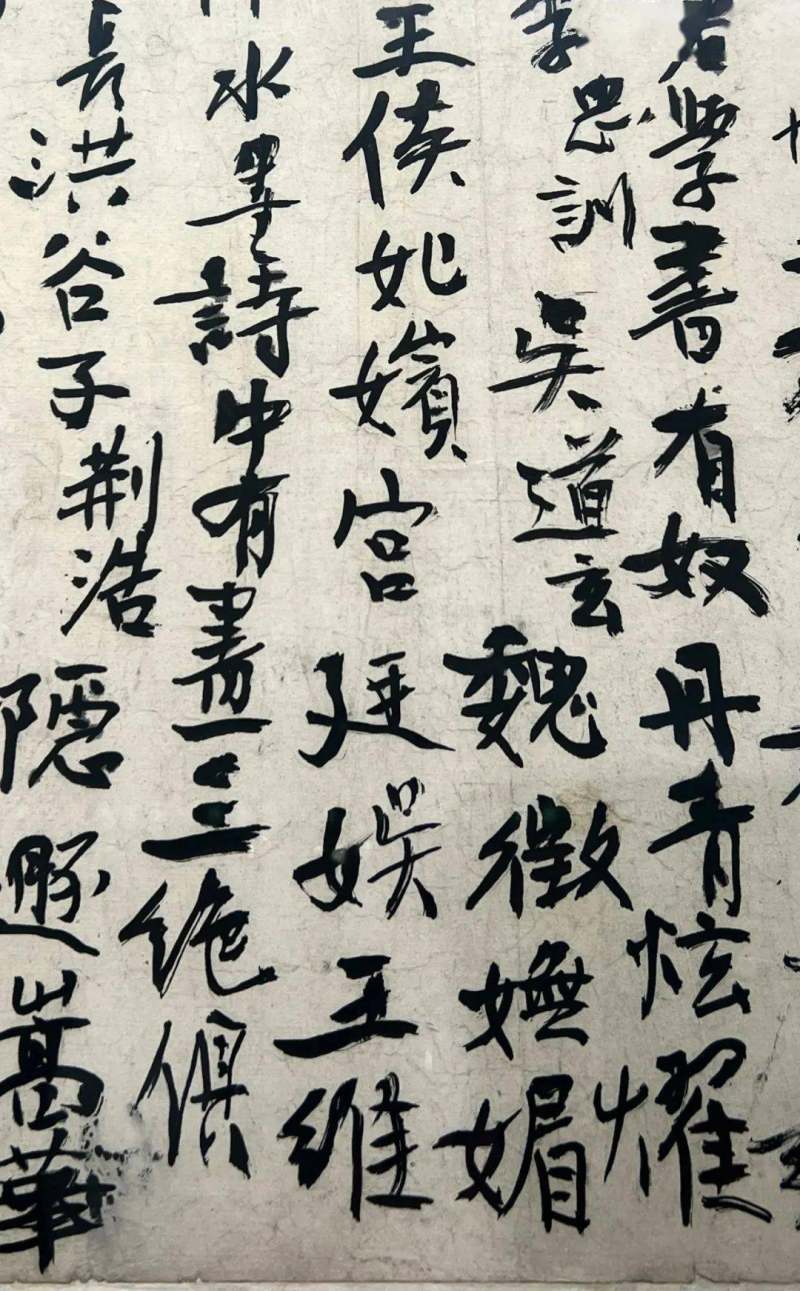 學書有奴丹青炫耀
李思訓吳道玄魏徵嫵媚
王侯妃嬪宮廷娛王維
水墨詩中有畫三絕俱
長洪谷子荆浩隱遯嵩華